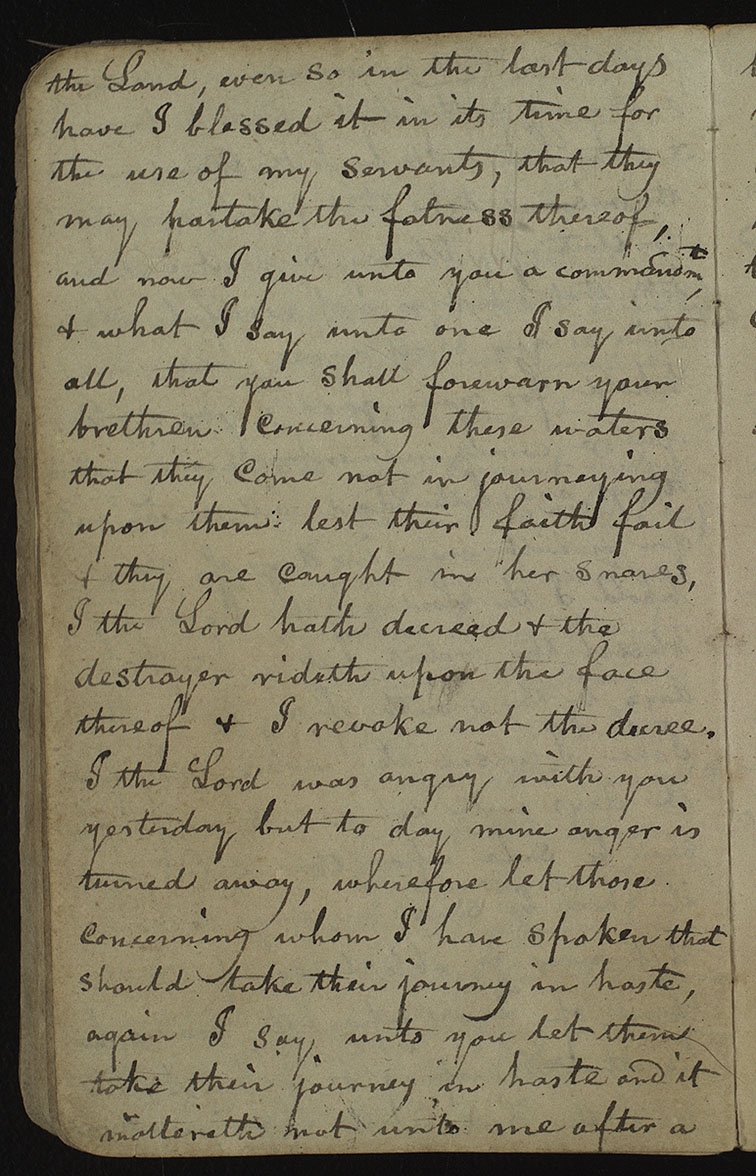 the Land, even so in the last days
have I blessed it in its time for
the use of my servants, that they
may partake the fatness thereof,
and now I give unto you a commandmt,
& what I say unto one I say unto
all, that you shall forewarn your
brethren concerning these waters
that they come not in journeying
upon them lest their faith fail
& they are caught in her snares,
I the Lord hath decreed & the
destroyer rideth upon the face
thereof & I revoke not the decree.
I the Lord was angry with you
yesterday but to day mine anger is
turned away, wherefore let those
concerning whom I have spoken that
should take their journey in haste,
again I say unto you let them
take their journey in haste and it
mattereth not unto me after a